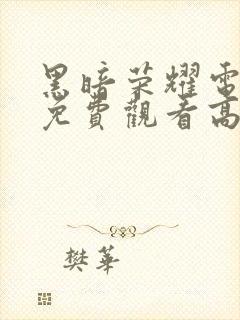 黑暗荣耀電
免費觀看高
樊華